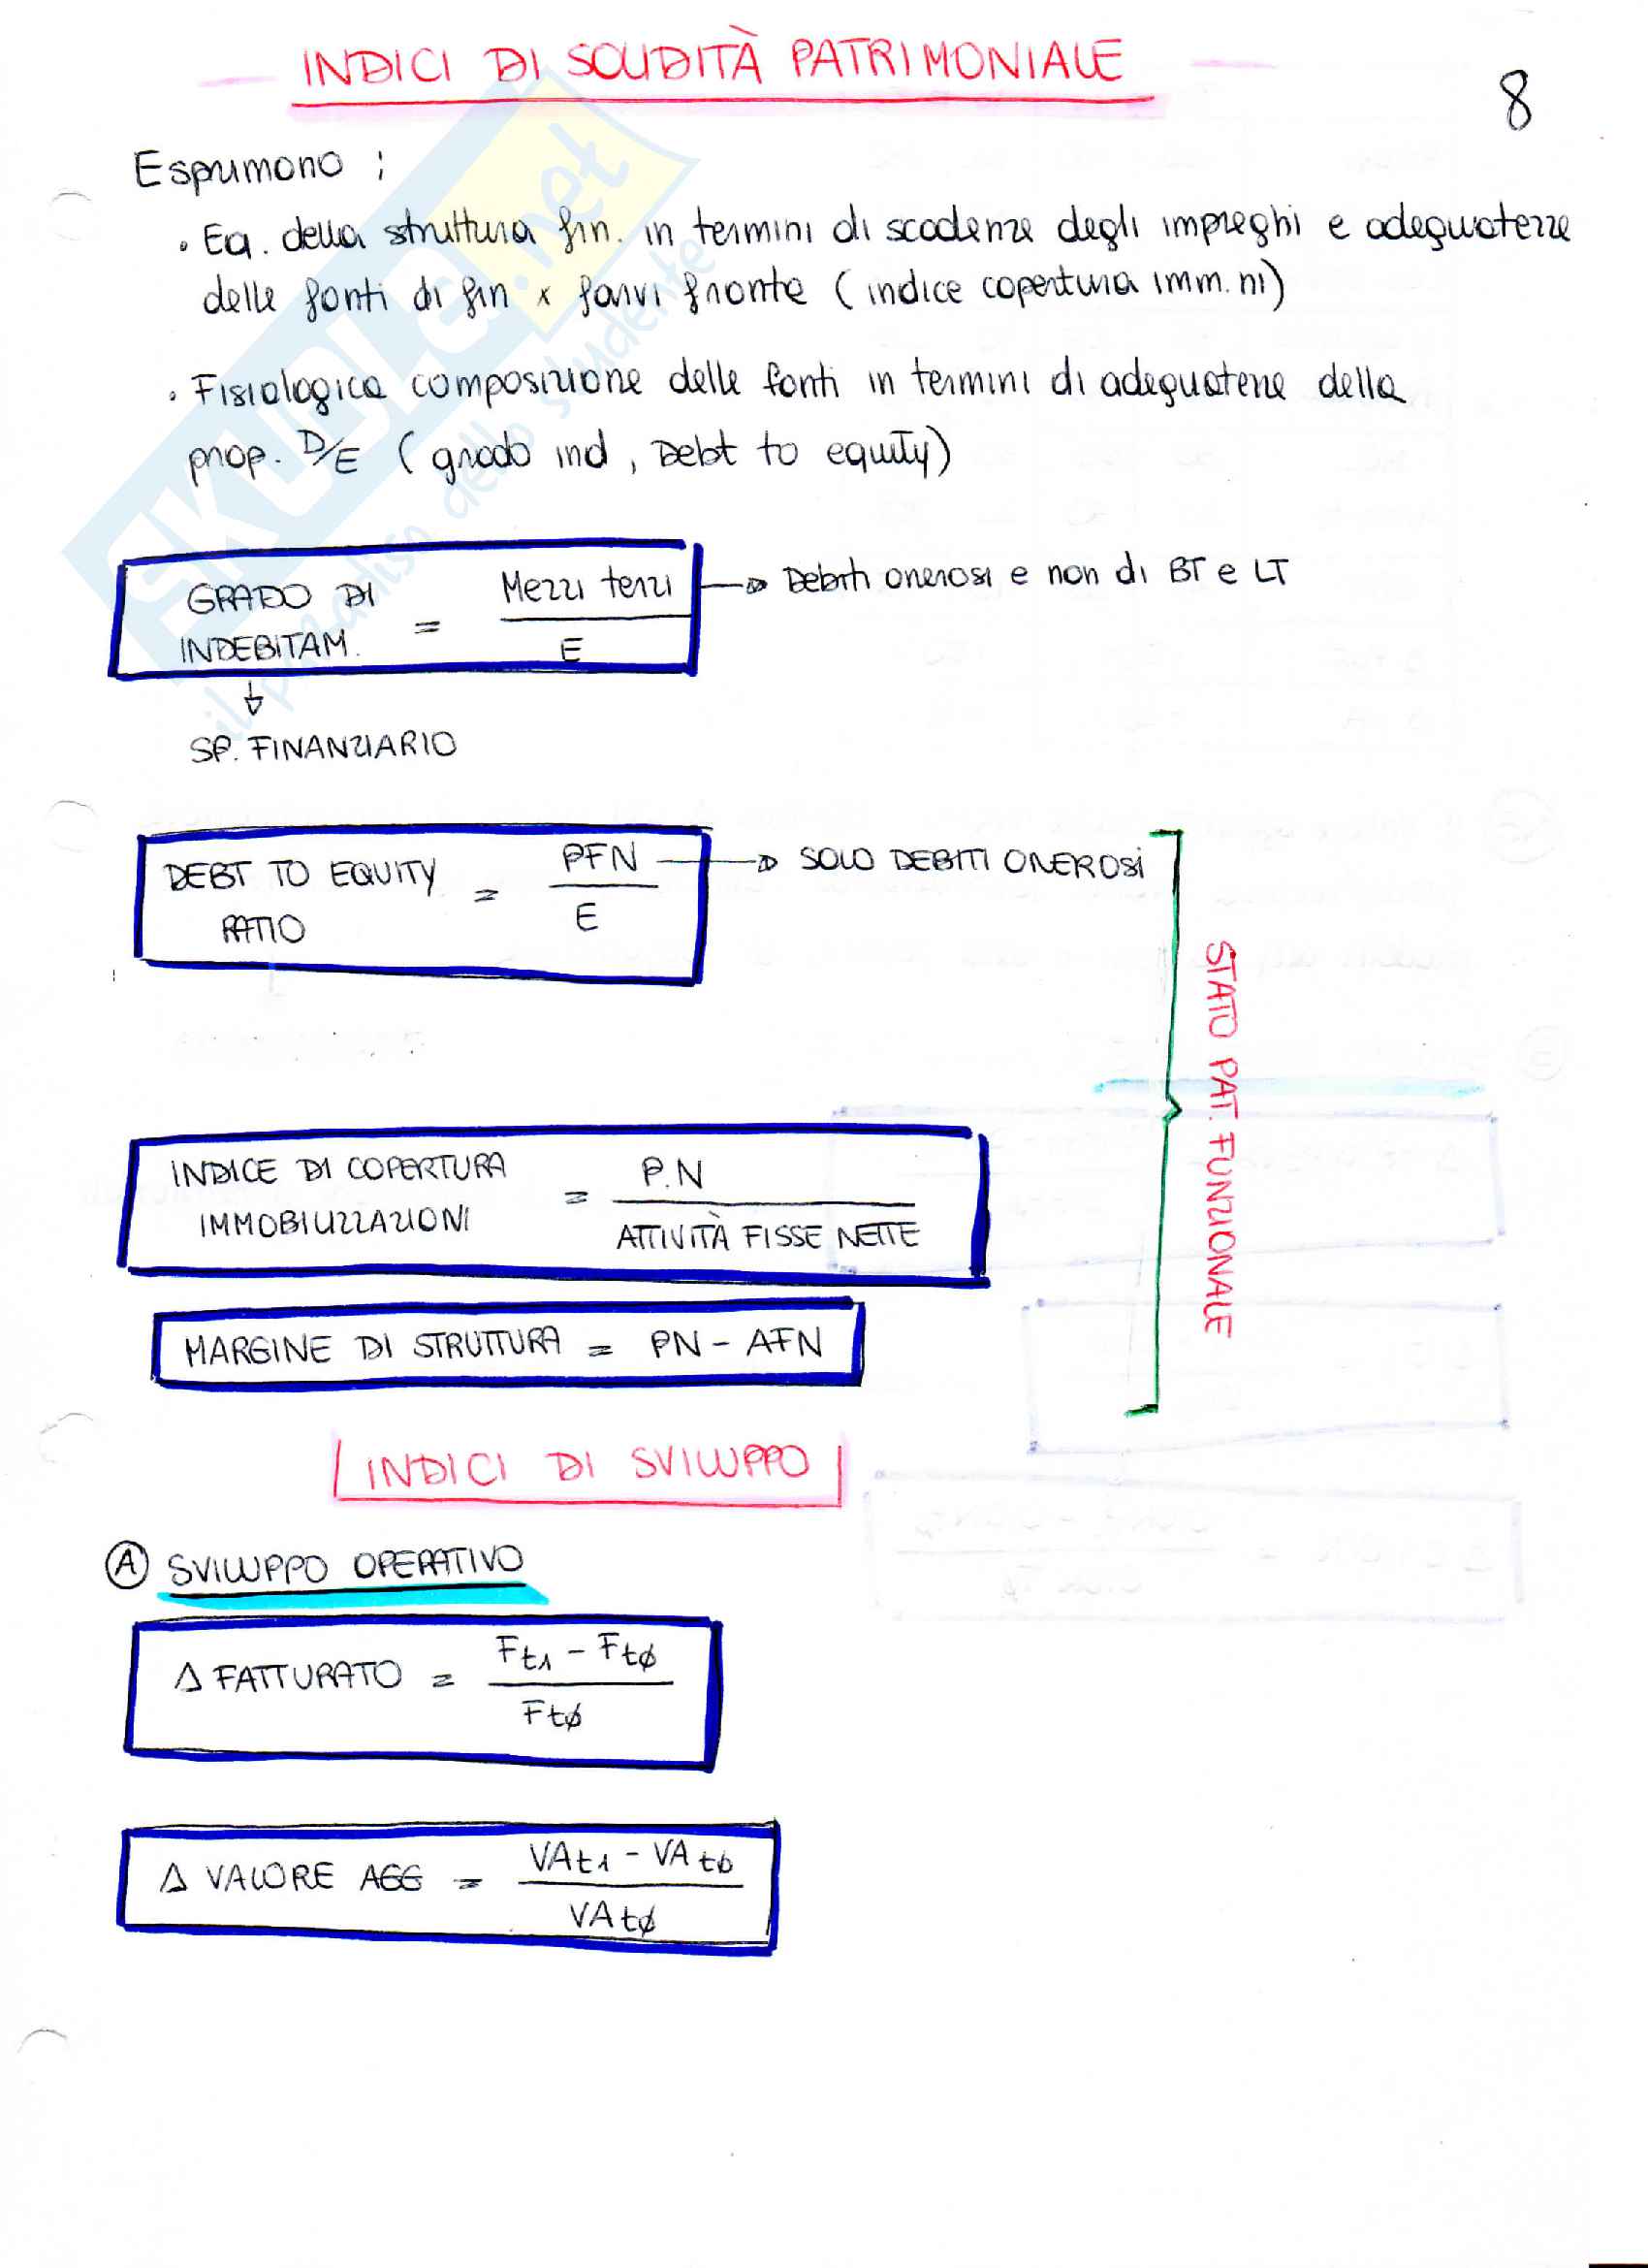 INDICI DI SOLIDITÀ PATRIMONIALE
8
Esprimono :
• Eq. della struttura fin. in termini di scadenze degli impieghi e adeguatezze
delle fonti di fin x farvi fronte (indice copertura imm.ni)
• Fisiologica composizione delle fonti in termini di adeguatezze della
prop. D/E (grado ind, Debt to equity)
GRADO DI INDEBITAM. = Mezzi terzi / E → Debiti onerosi e non di BT e LT
↓
SP. FINANZIARIO
DEBT TO EQUITY RATIO = PFN / E → SOLO DEBITI ONEROSI
STATO PAT. FUNZIONALE
INDICE DI COPERTURA IMMOBILIZZAZIONI = P.N / ATTIVITÀ FISSE NETTE
MARGINE DI STRUTTURA = PN - AFN
INDICI DI SVILUPPO
A SVILUPPO OPERATIVO
Δ FATTURATO = Ft1 - Ft0 / Ft0
Δ VALORE AGG = VAt1 - VAt0 / VAt0
SKUOLA.net
il paradiso dello studente